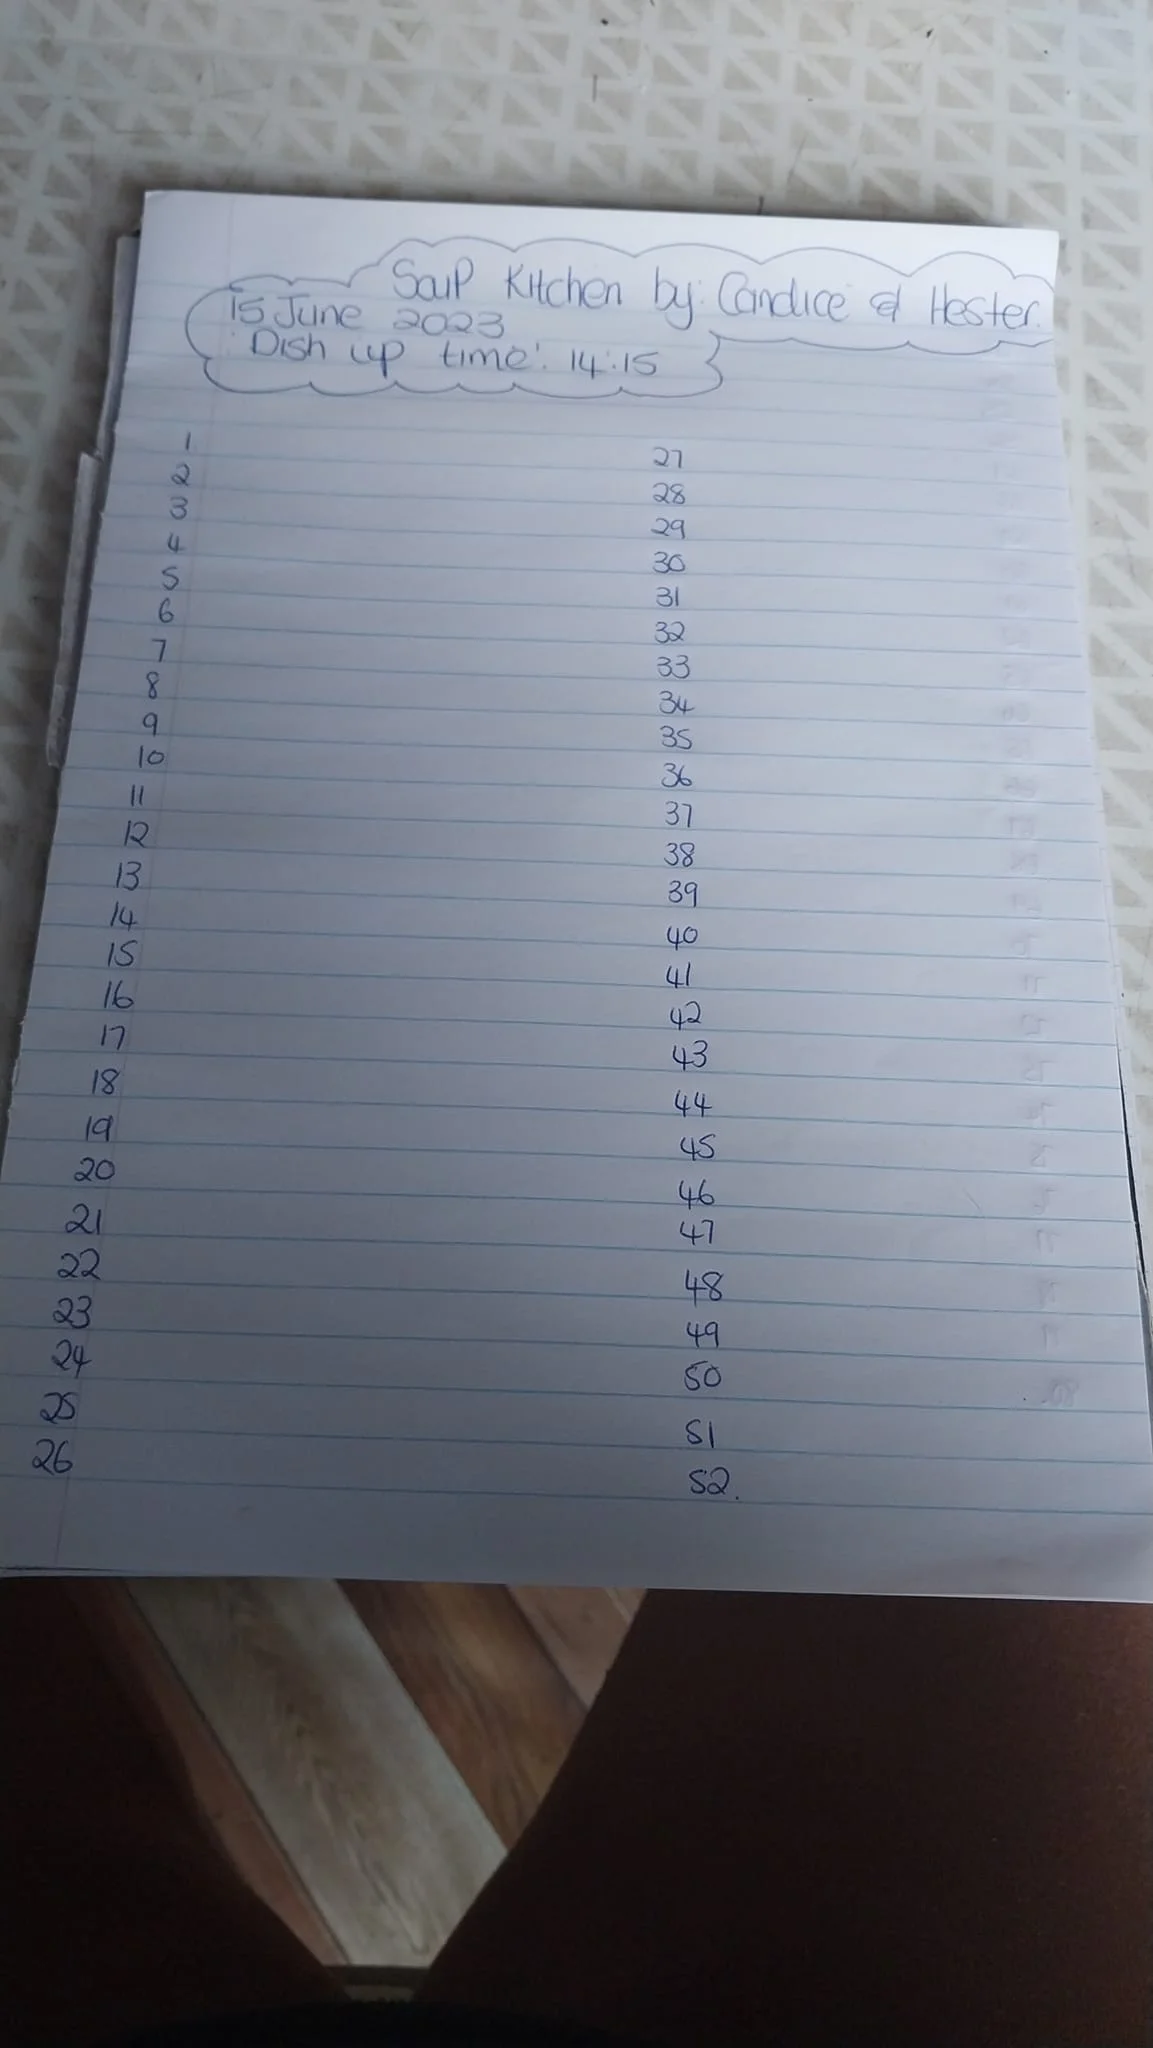 Soup Kitchen by: Candice & Hester.
15 June 2023
Dish up time: 14:15
1
2
3
4
5
6
7
8
9
10
11
12
13
14
15
16
17
18
19
20
21
22
23
24
25
26
27
28
29
30
31
32
33
34
35
36
37
38
39
40
41
42
43
44
45
46
47
48
49
50
51
52.